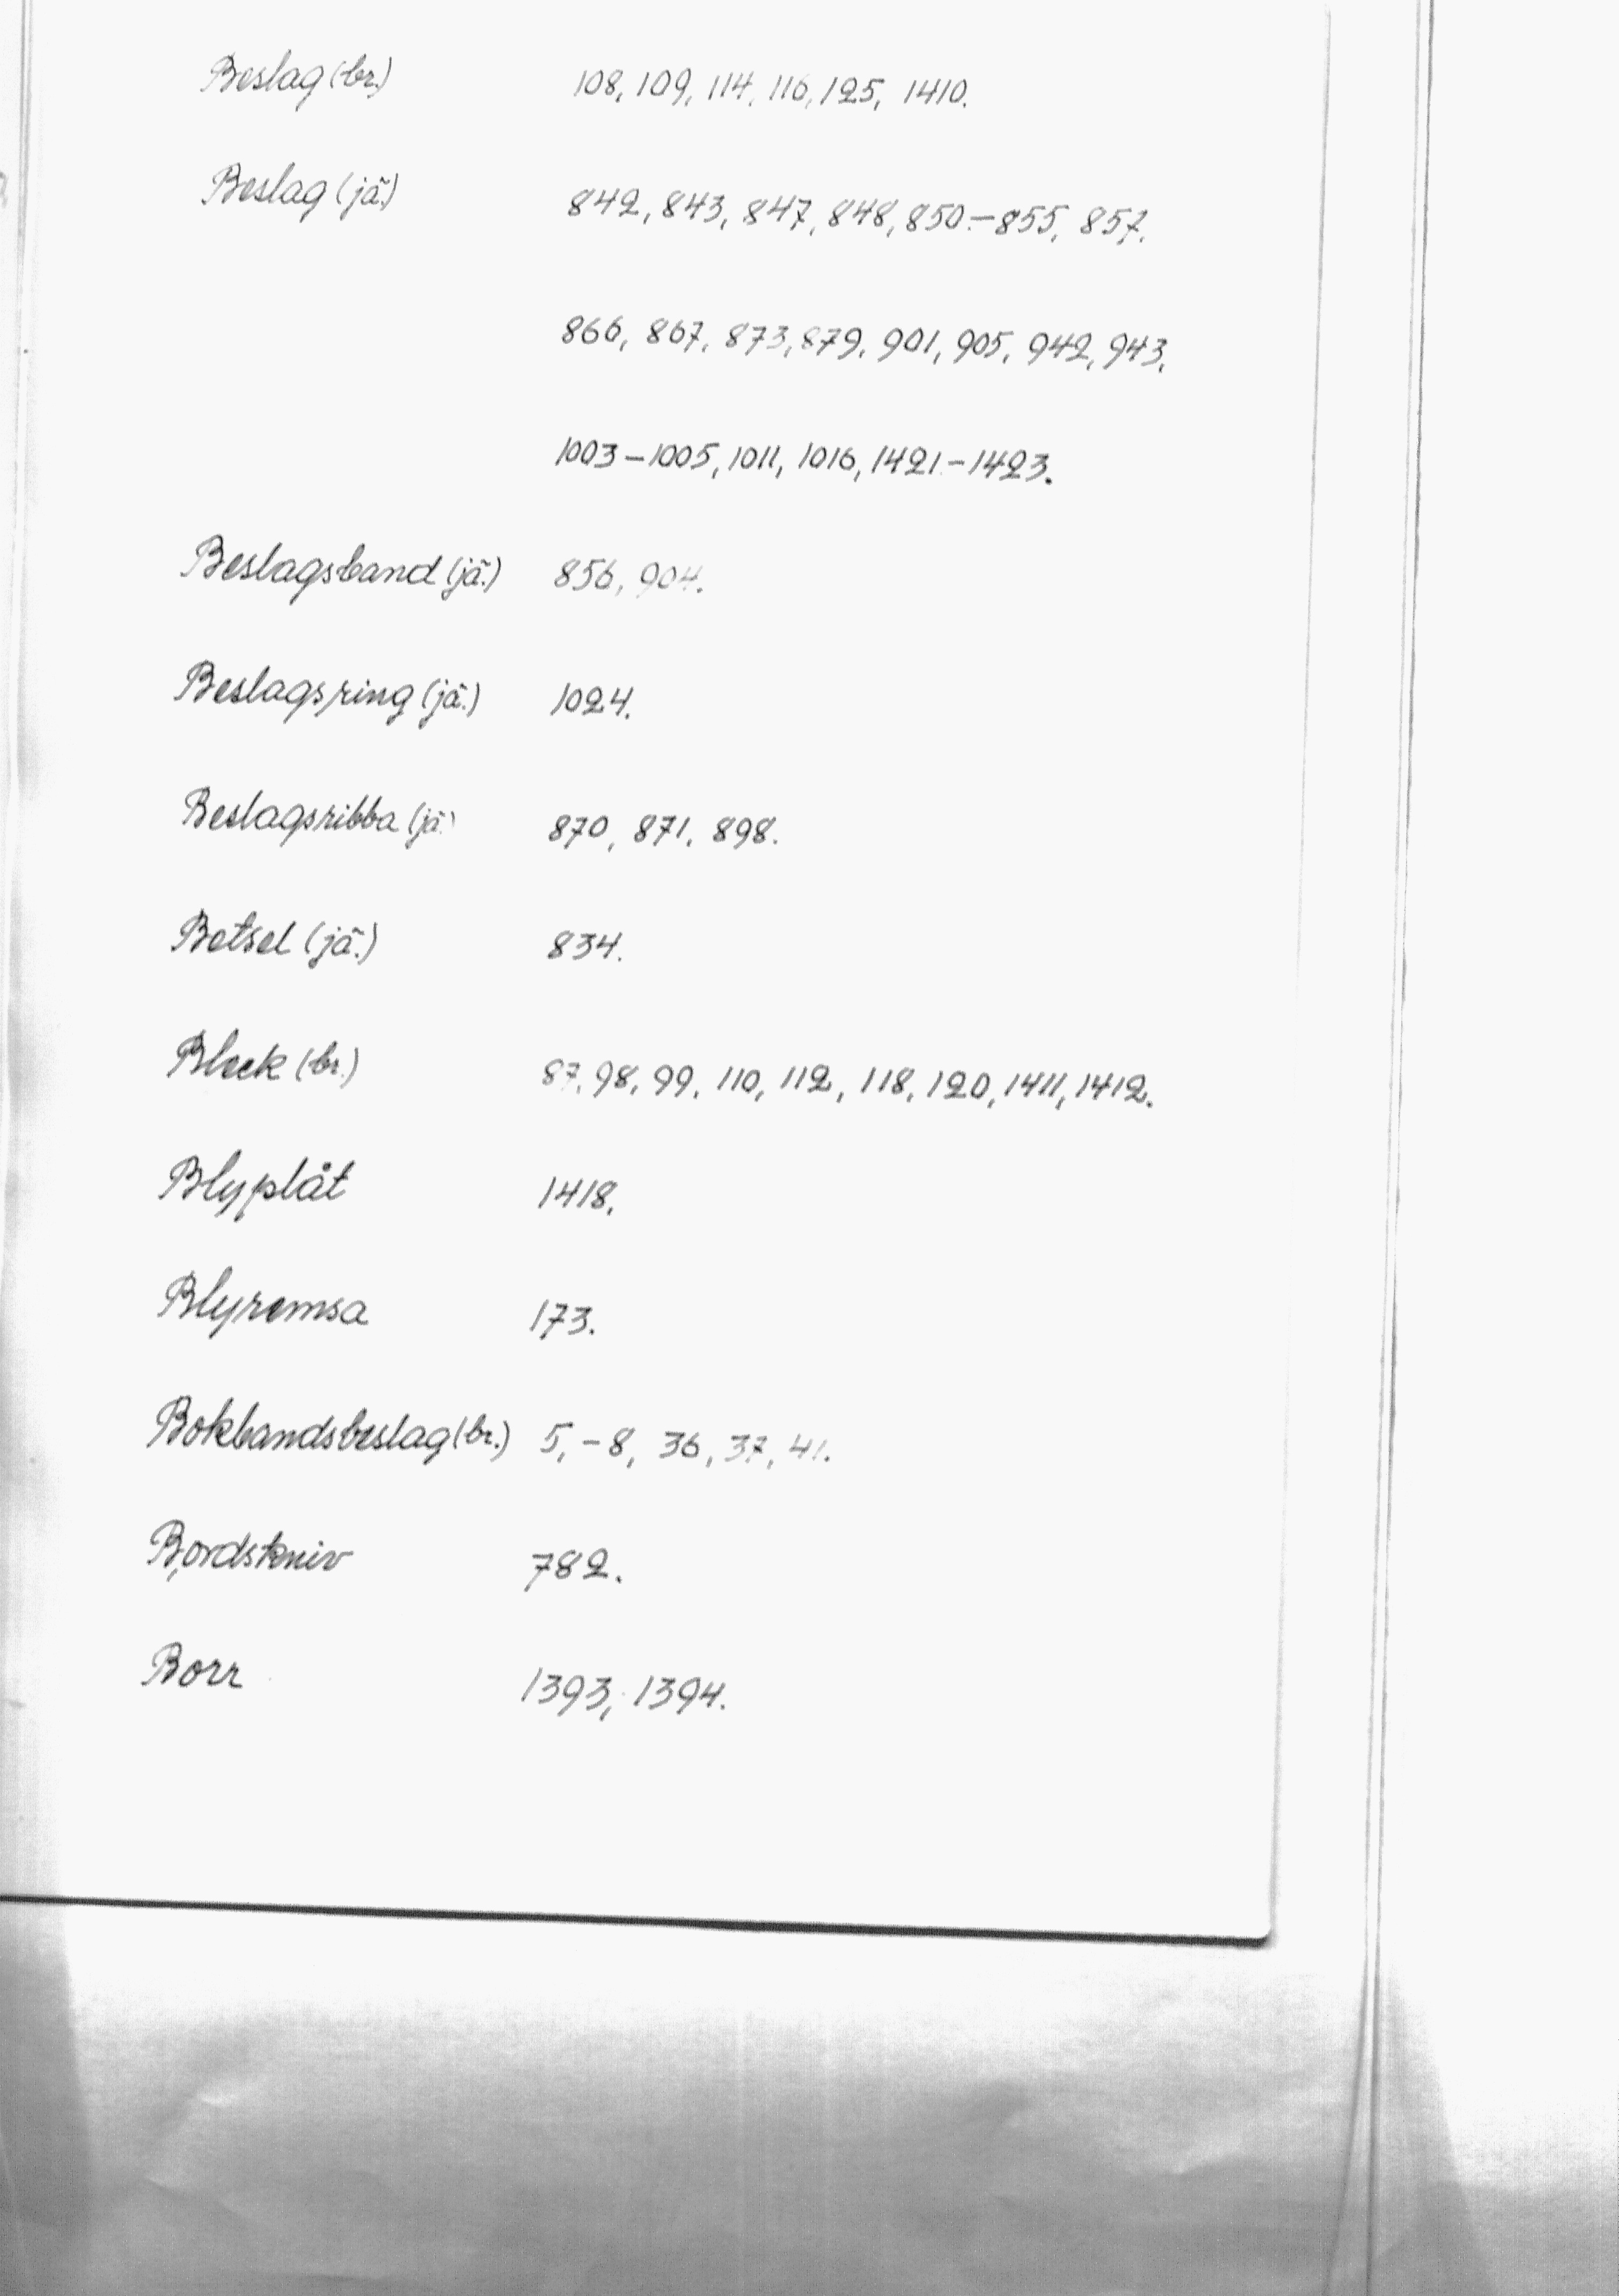 Beslag (br.) 108, 109, 114, 116, 125, 1410.
Beslag (jä.) 842, 843, 847, 848, 850.-855, 857,
866, 867, 873, 879, 901, 905, 942, 943,
1003-1005, 1011, 1016, 1421-1423.
Beslagsband (jä.) 856, 904.
Beslagsring (jä.) 1024.
Beslagsribba (jä.) 870, 871, 898.
Betsel (jä.) 834.
Bleck (br.) 87, 98, 99, 110, 112, 118, 120, 1411, 1412.
Blyplåt 1418.
Blyremsa 173.
Bokbandsbeslag (br.) 5,-8, 36, 37, 41.
Bordskniv 782.
Borr 1393, 1394.